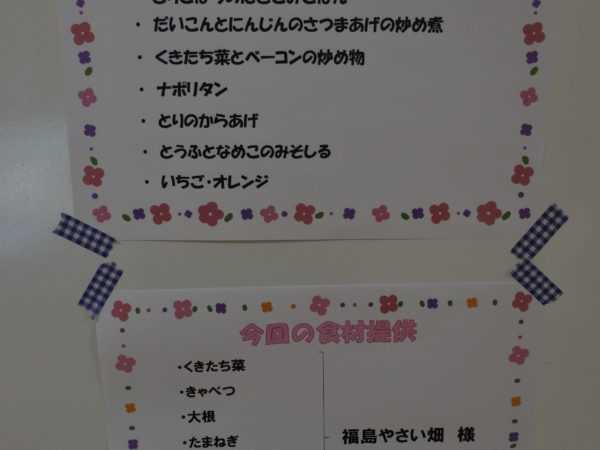 ・だいこんとにんじんのさつまあげの炒め煮
・くきたち菜とベーコンの炒め物
・ナポリタン
・とりのからあげ
・とうふとなめこのみそしる
・いちご・オレンジ
今回の食材提供
・くきたち菜
・きゃべつ
・大根
・たまねぎ
福島やさい畑 様